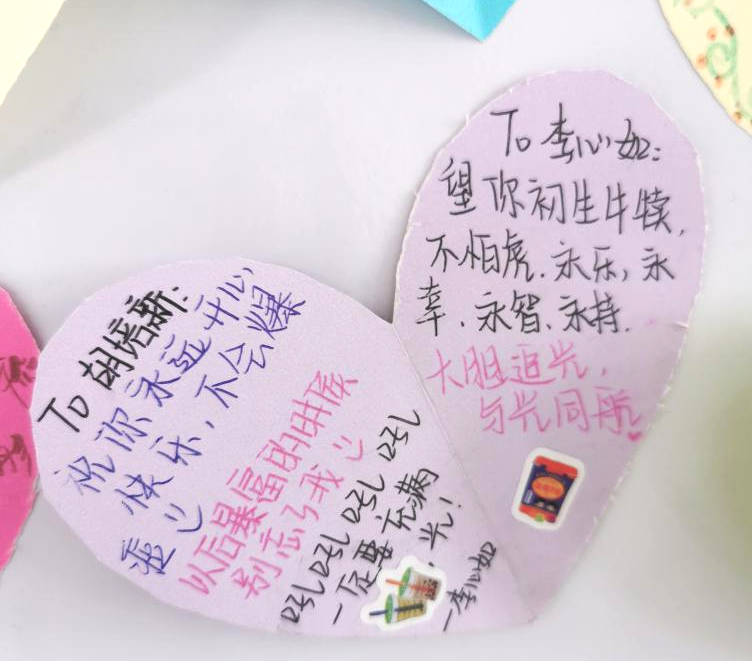 To 胡培新:
祝你永远开心
快乐,不会爆
雷
以后暴富的时候
别忘了我
一定要充满
光!
—李心如
To 李心如:
望你初生牛犊,
不怕虎.永乐,永
幸.永智.永持.
大胆追光,
与光同航